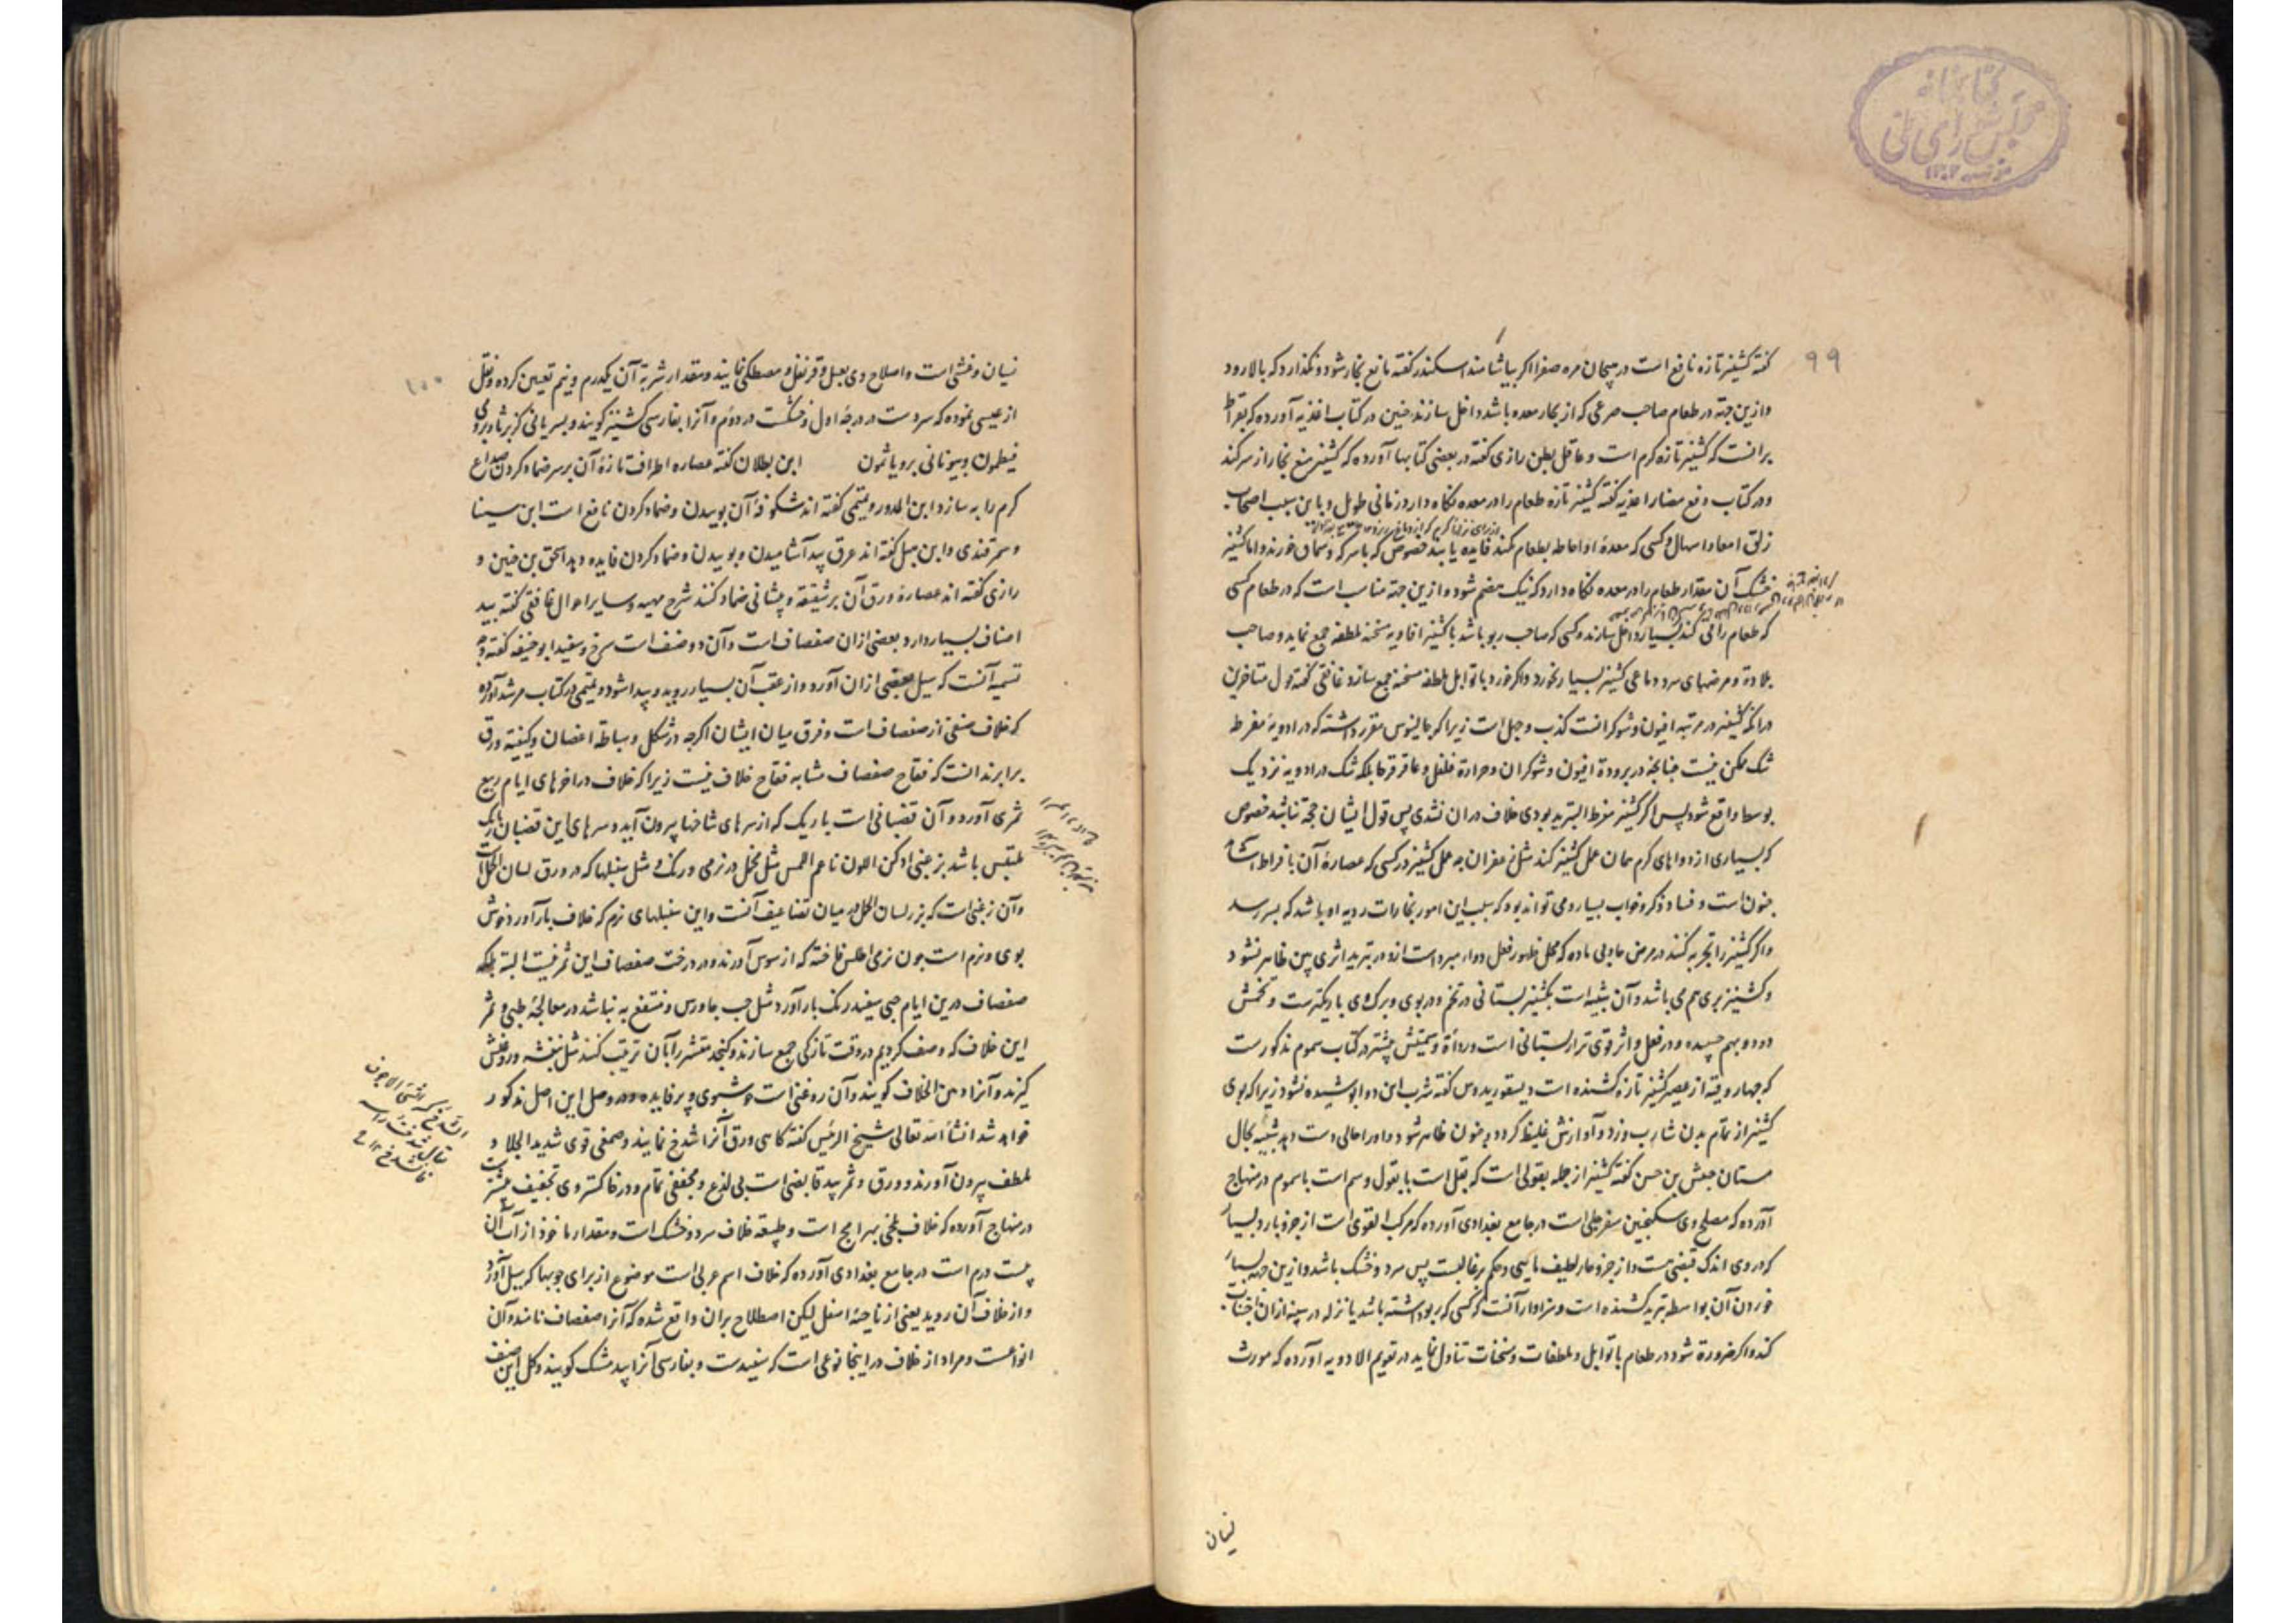 ۹۹
کتابخانه
مجلس شورای ملی
گفته کشنیز تازه نافع است در هیجان مره صفرا اگر بیاشامند اسکندر گفته مانع بخار شود و نگذارد که بالا رود
و ازین جهة در طعام صاحب صرعی که از بخار معده باشد داخل سازند حنین در کتاب اغذیه آورده که بقراط
برانست که کشنیز تازه گرم است و عاقل بطن رازی گفته در بعضی کتابها آورده که کشنیز منع بخار از سر کند
و در کتاب دفع مضار اغذیه گفته کشنیز تازه طعام را در معده نگاه دارد زمانی طویل و باین سبب اصحاب
زلق امعا و اسهال و کسی که معدهٔ او احاطه بطعام نکند فایده یابند خصوص که با سرکه و سماق خورند و اما کشنیز
خشک آن مقدار طعام را در معده نگاه دارد که نیک هضم شود و ازین جهة مناسب است که در طعام کسی
که طعام را قی کند بسیار داخل سازند و کسی که صاحب ربو باشد با کشنیز افاویه مسخنه ملطفه جمع نماید و صاحب
بلادة و مرضهای سرد دماغی کشنیز بسیار نخورد و اگر خورد با توابل ملطفه مسخنه جمع سازد غافقی گفته قول متأخرین
در آنکه کشنیز در مرتبه افیون و شوکرانست کذب و جهل است زیرا که جالینوس مقرر داشته که در ادویهٔ مفرط
شک ممکن نیست چنانچه در برودة افیون و شوکران و حرارة فلفل و عاقرقرحا بلکه شک در ادویه نزدیک
بوسط واقع شود پس اگر کشنیز مفرط التبرید بودی خلاف دران نشدی پس قول ایشان حجة نباشد خصوص
که بسیاری از دواهای گرم همان عمل کشنیز کند مثل زعفران چه عمل کشنیز در کسی که عصارهٔ آن بافراط آشامد
جنون است و فساد فکر و خواب بسیار و می تواند بود که سبب این امور بخارات ردیه او باشد که بسر رسد
و اگر کشنیز را تجربه کنند در مرض حار بی ماده که محل ظهور فعل دواء مبرد است ازو در تبرید اثری بین ظاهر نشود
و کشنیز بری هم می باشد و آن شبیه است بکشنیز بستانی در تخم و در بوی و برگ وی باریکترست و تخمش
دو دو بهم چسپیده و در فعل و اثر قوی تر از بستانی است و رداءة و سمیتش بیشتر در کتاب سموم مذکورست
که چهار وقیه از عصیر کشنیز تازه کشنده است دیسقوریدوس گفته شرب این دوا پوشیده نشود زیرا که بوی
کشنیز از تمام بدن شارب وزد و آوازش غلیظ گردد و جنون ظاهر شود و او را حالی دست دهد شبیه بحال
مستان حبیش بن حسن گفته کشنیز از جمله بقولی است که بقل است با بقول و سم است با سموم در منهاج
آورده که مصلح وی سکنجبین سفرجلی است در جامع بغدادی آورده که مرکب القوی است از جزو بارد بسیار
که در وی اندک قبضی هست و از جزو حار لطیف مایی و حکم مر غالبست پس سرد و خشک باشد و ازین جهة بسیار
خوردن آن بواسطه تبرید کشنده است و سزاوار آنست که کسی که ربو داشته باشد یا نزله در سینه ازان اجتناب
کند و اگر ضرورة شود در طعام با توابل و ملطفات و مسخنات تناول نماید در تقویم الادویه آورده که مورث
نسیان
۱۰۰
نسیان و غشی است و اصلاح وی بعسل و قرنفل و مصطکی نمایند و مقدار شربة آن یکدرم و نیم تعیین کرده و نقل
از عیسی نموده که سردست در درجهٔ اول و خشکست در دوم و آنرا بفارسی کشنیز گویند و بسریانی کزبرثا و برومی
و بیونانی ابن بطلان گفته عصاره اطراف تازهٔ آن بر سر ضماد کردن صداع
گرم را به سازد ابن المدور و تمیمی گفته اند شکوفهٔ آن بوییدن و ضماد کردن نافع است ابن سینا
و سمرقندی و ابن هبل گفته اند عرق بید آشامیدن و بوییدن و ضماد کردن فایده دهد اسحق بن حنین و
رازی گفته اند عصارهٔ ورق آن بر شقیقه و پیشانی ضماد کنند شرح مهیه و سایر احوال غافقی گفته بید
اصناف بسیار دارد بعضی ازان صفصاف است و آن دو صنف است سرخ و سفید ابو حنیفه گفته وجه
تسمیه آنست که سیل بعضی ازان آورد و از عقب آن بسیار روید و پیدا شود و تمیمی در کتاب مرشد آورده
که خلاف صنفی از صفصاف است و فرق میان ایشان اگرچه در شکل و سباطة اغصان و کیفیة ورق
برابرند انست که فقاح صفصاف مشابه فقاح خلاف نیست زیرا که خلاف در اخرهای ایام ربیع
ثمری آورد و آن قضبانی است باریک که از سرهای شاخها بیرون آید و سرهای این قضبان باریک
ملتبس باشد بزغبی ادکن اللون ناعم الملمس مثل مخمل در نرمی و رنگ و مثل سنبلها که در ورق لسان الحمل است
و آن زغبی است که بزر لسان الحمل در میان تضاعیف آنست و این سنبلهای نرم که خلاف بار آورد خوش
بوی و نرم است چون نرمی اطلس فاخته که از سوس آورند و در درخت صفصاف این ثمر نیست البته بلکه
صفصاف درین ایام حبی سفید رنگ بار آورد مثل حب جاورس و منتفع به نباشد در معالجهٔ طبی و ثمر
این خلاف که وصف کردیم در وقت تازگی جمع سازند و کنجد مقشر را بآن تربیت کنند مثل بنفشه و روغنش
گیرند و آنرا دهن الخلاف گویند و آن روغنی است خوشبوی و پرفایده و در وصل این اصل مذکور
خواهد شد انشاء الله تعالی شیخ الرئیس گفته گاهی ورق آنرا شدخ نمایند و صمغی قوی شدید الجلا و
ملطف بیرون آورند و ورق و ثمر بید قابضی است بی لذع و مجففی تمام و در خاکستر وی تجفیف بیشترست
در منهاج آورده که خلاف بلخی بهرامج است و طبیعة خلاف سرد و خشک است و مقدار ماخوذ از آب آن
بیست درم است در جامع بغدادی آورده که خلاف اسم عربی است موضوع از برای چوبها که سیل آورد
و از خلاف آن روید یعنی از ناحیهٔ اسفل لیکن اصطلاح بران واقع شده که آنرا صفصاف نامند و آن
انواعست و مراد از خلاف در اینجا نوعی است که سفیدست و بفارسی آنرا بید مشک گویند و کل این صنف